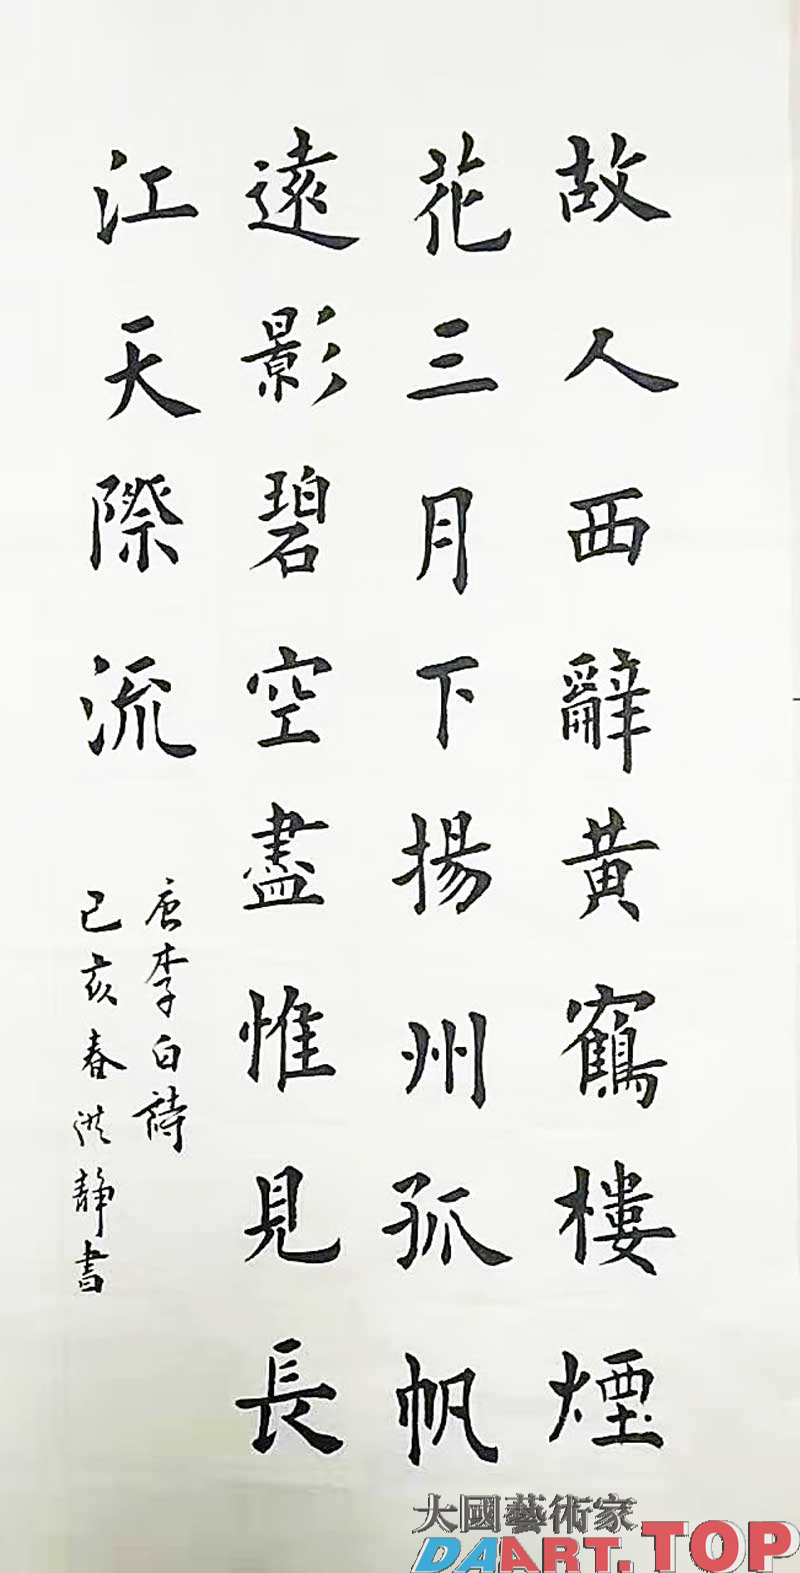 故人西辭黄鶴樓煙
花三月下揚州孤帆
遠影碧空盡惟見長
江天際流
唐李白詩
己亥春洪靜書
大國藝術家
DAART.TOP